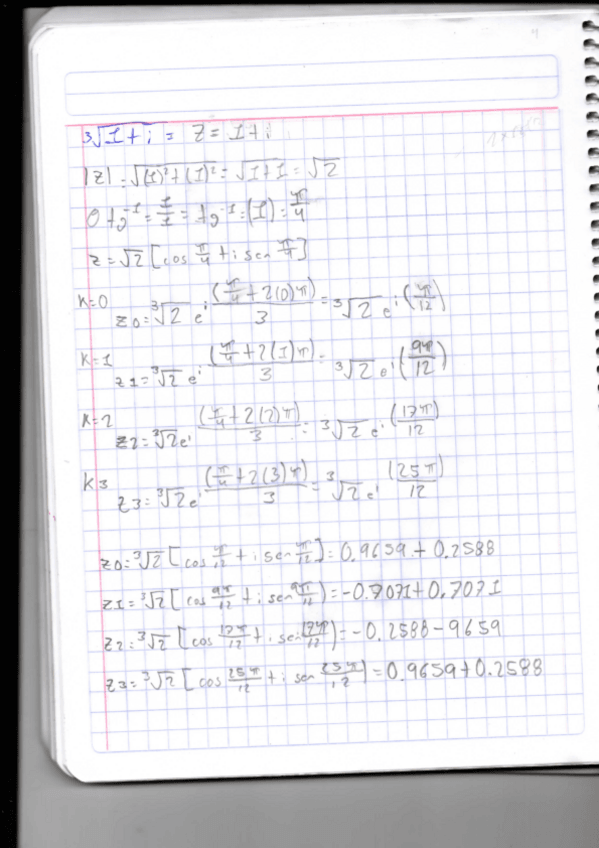 ³√1+i = z = 1+i
|z| = √(1)²+(1)² = √1+1 = √2
θ tg⁻¹ = 1/1 = tg⁻¹ = (1) = π/4
z = √2 [cos π/4 + i sen π/4]
k=0 z0 = ³√2 e^i (π/4 + 2(0)π)/3 = ³√2 e^i (π/12)
k=1 z1 = ³√2 e^i (π/4 + 2(1)π)/3 = ³√2 e^i (9π/12)
k=2 z2 = ³√2 e^i (π/4 + 2(2)π)/3 = ³√2 e^i (17π/12)
k3 z3 = ³√2 e^i (π/4 + 2(3)π)/3 = ³√2 e^i (25π/12)
z0 = ³√2 [cos π/12 + i sen π/12] = 0.9659 + 0.2588
z1 = ³√2 [cos 9π/12 + i sen 9π/12) = -0.7071 + 0.7071
z2 = ³√2 [cos 17π/12 + i sen 17π/12) = -0.2588 - 9659
z3 = ³√2 [cos 25π/12 + i sen 25π/12) = 0.9659 + 0.2588